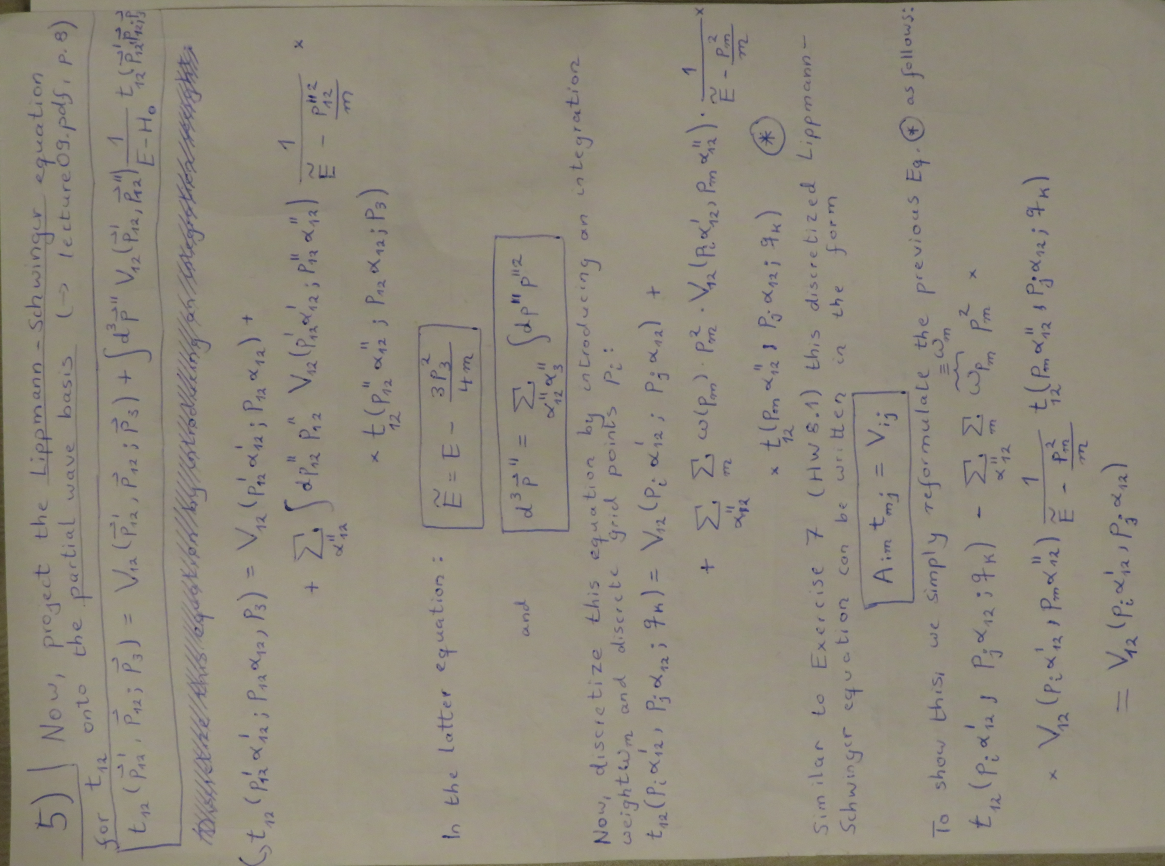 5) Now, project the Lippmann-Schwinger equation
for t₁₂ onto the partial wave basis (→ lecture09.pdf, p.8)
t₁₂(p⃗₁₂', p⃗₁₂; p⃗₃) = V₁₂(p⃗₁₂', p⃗₁₂; p⃗₃) + ∫d³p⃗'' V₁₂(p⃗₁₂', p⃗₁₂'') 1/(E-H₀) t₁₂(p⃗₁₂'' p⃗₁₂; p⃗₃)
↪ t₁₂(p₁₂'α₁₂'; p₁₂α₁₂, p₃) = V₁₂(p₁₂'α₁₂'; p₁₂α₁₂) +
+ Σ_{α₁₂''} ∫dp₁₂'' p₁₂'' V₁₂(p₁₂'α₁₂'; p₁₂''α₁₂'') 1/(Ẽ - p₁₂''²/m) ×
× t₁₂(p₁₂''α₁₂''; p₁₂α₁₂; p₃)
In the latter equation: Ẽ = E - 3p₃²/4m
and d³p⃗'' = Σ_{α₁₂''α₃''} ∫dp'' p''²
Now, discretize this equation by introducing an integration
weight ω_m and discrete grid points p_i:
t₁₂(p_iα₁₂', p_jα₁₂; q_k) = V₁₂(p_iα₁₂'; p_jα₁₂) +
+ Σ_{α₁₂''} Σ_m ω(p_m)·p_m²·V₁₂(p_iα₁₂', p_mα₁₂'')· 1/(Ẽ - p_m²/m) ×
× t₁₂(p_mα₁₂'', p_jα₁₂; q_k) (*)
Similar to Exercise 7 (HW 8.1) this discretized Lippmann-
Schwinger equation can be written in the form
A_im t_mj = V_ij
To show this, we simply reformulate the previous Eq. (*) as follows:
t₁₂(p_iα₁₂', p_jα₁₂; q_k) - Σ_{α₁₂''} Σ_m ω_{p_m} p_m² (≡ ω̃_m) ×
× V₁₂(p_iα₁₂', p_mα₁₂'') 1/(Ẽ - p_m²/m) t₁₂(p_mα₁₂'', p_jα₁₂; q_k)
= V₁₂(p_iα₁₂', p_jα₁₂)